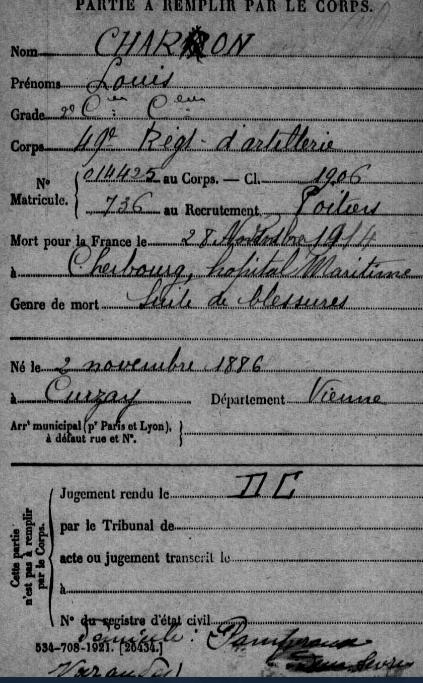 PARTIE À REMPLIR PAR LE CORPS.
Nom CHARRON
Prénoms Louis
Grade 2e Cer Ceur
Corps 49e Régt d'artillerie
No Matricule. { 014425 au Corps. — Cl. 1906
736 au Recrutement Poitiers
Mort pour la France le 28 1914
à Cherbourg, hopital Maritime
Genre de mort Suite de blessures
Né le 2 novembre 1886
à Curzay Département Vienne
Arrt municipal (pr Paris et Lyon), à défaut rue et No. }
Cette partie n'est pas à remplir par le Corps.
Jugement rendu le DC
par le Tribunal de
acte ou jugement transcrit le
à
No du registre d'état civil
domicile : Pamproux
534-708-1921. [26434.] Deux Sèvres